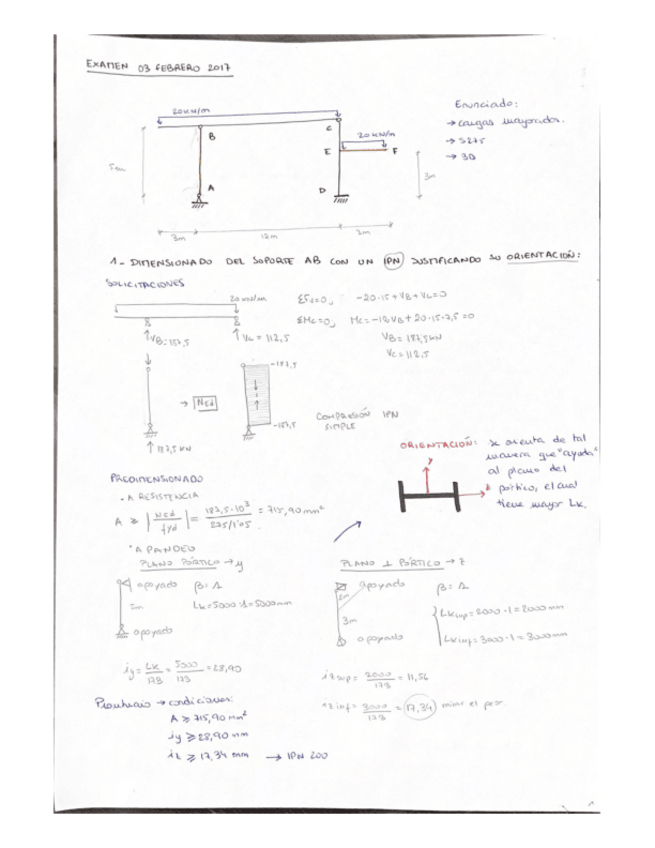 EXAMEN 03 FEBRERO 2017
20 kN/m
B
C
20 kN/m
E
F
5m
A
D
3m
3m
12m
3m
Enunciado:
→ cargas mayoradas.
→ S275
→ 3D
1- DIMENSIONADO DEL SOPORTE AB CON UN IPN JUSTIFICANDO SU ORIENTACIÓN:
SOLICITACIONES
20 kN/m
VB=187,5
VC = 112,5
-20·15+VB+VC=0
VB= 187,5 kN
VC= 112,5
→ NEd
-187,5
-187,5
187,5 kN
COMPRESIÓN IPN
SIMPLE
ORIENTACIÓN: se orienta de tal
manera que "ayuda"
al plano del
pórtico, el cual
tiene mayor Lk.
y
PREDIMENSIONADO
· A RESISTENCIA
A ≥ |NEd/fyd| = 187,5·10³/275/1'05 = 715,90 mm²
· A PANDEO
PLANO PÓRTICO → y
apoyado β= 1
5m
Lk=5000·1=5000mm
apoyado
iy= Lk/173 = 5000/173 = 28,90
PLANO ⊥ PÓRTICO → z
apoyado β= 1
2m
3m
Lksup=2000·1=2000mm
Lkinf=3000·1=3000mm
apoyado
iz sup= 2000/173 = 11,56
iz inf= 3000/173 = 17,34
Prontuario → condiciones:
A ≥ 715,90 mm²
iy ≥ 28,90 mm
iz ≥ 17,34 mm → IPN 200